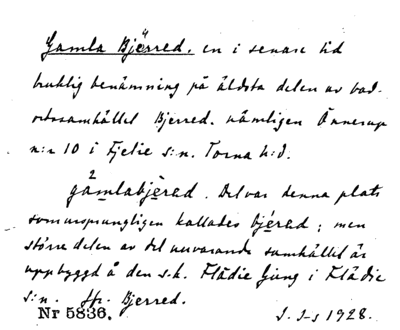 Gamla Bjërred, en i senare tid
bruklig benämning på äldsta delen av bad-
ortssamhället Bjerred, nämligen Önnerup
n:r 10 i Fjelie s:n. Torna h:d.
gámlabjèrad. Det var denna plats
som ursprungligen kallades bjèrad; men
större delen av det nuvarande samhället är
uppbyggd å den s.k. Flädie ljung i Flädie
s:n. Jfr. Bjerred.
Nr 5836. 1928.